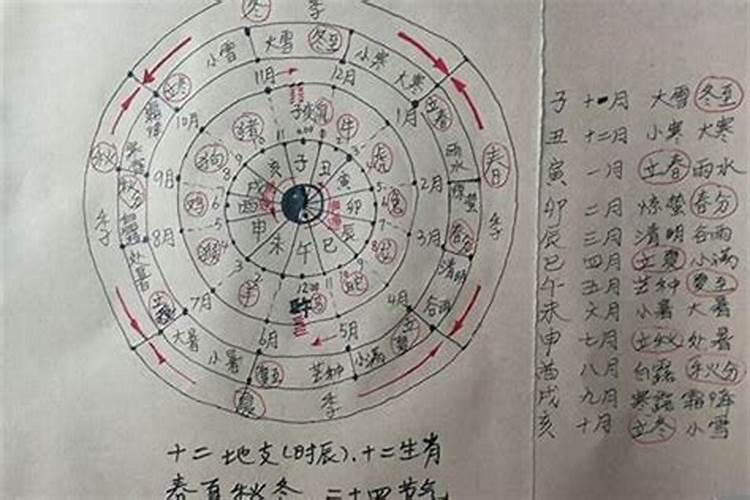 冬 季
小雪 大雪 冬至 小寒 大寒
立冬 11月 12月 立春
10月 子 1月
猪 鼠 牛
秋 狗 亥 子 丑 虎 雨水 春
9月 戌 寅 2月
秋分 鸡 酉 卯 兔 惊蛰
季 申 辰 春分 季
8月 未 午 巳 3月
处暑 羊 清明
立秋 7月 12:00 4月 谷雨
午
大暑 6月 5月 立夏
小暑 夏至 芒种 小满
夏 季
子 十一月 大雪 冬至
丑 十二月 小寒 大寒
寅 一月 立春 雨水
卯 二月 惊蛰 春分
辰 三月 清明 谷雨
巳 四月 立夏 小满
午 五月 芒种 夏至
未 六月 小暑 大暑
申 七月 立秋 处暑
酉 八月 白露 秋分
戌 九月 寒露 霜降
亥 十月 立冬 小雪
十二地支(时辰)、十二生肖
春夏秋冬 二十四节气